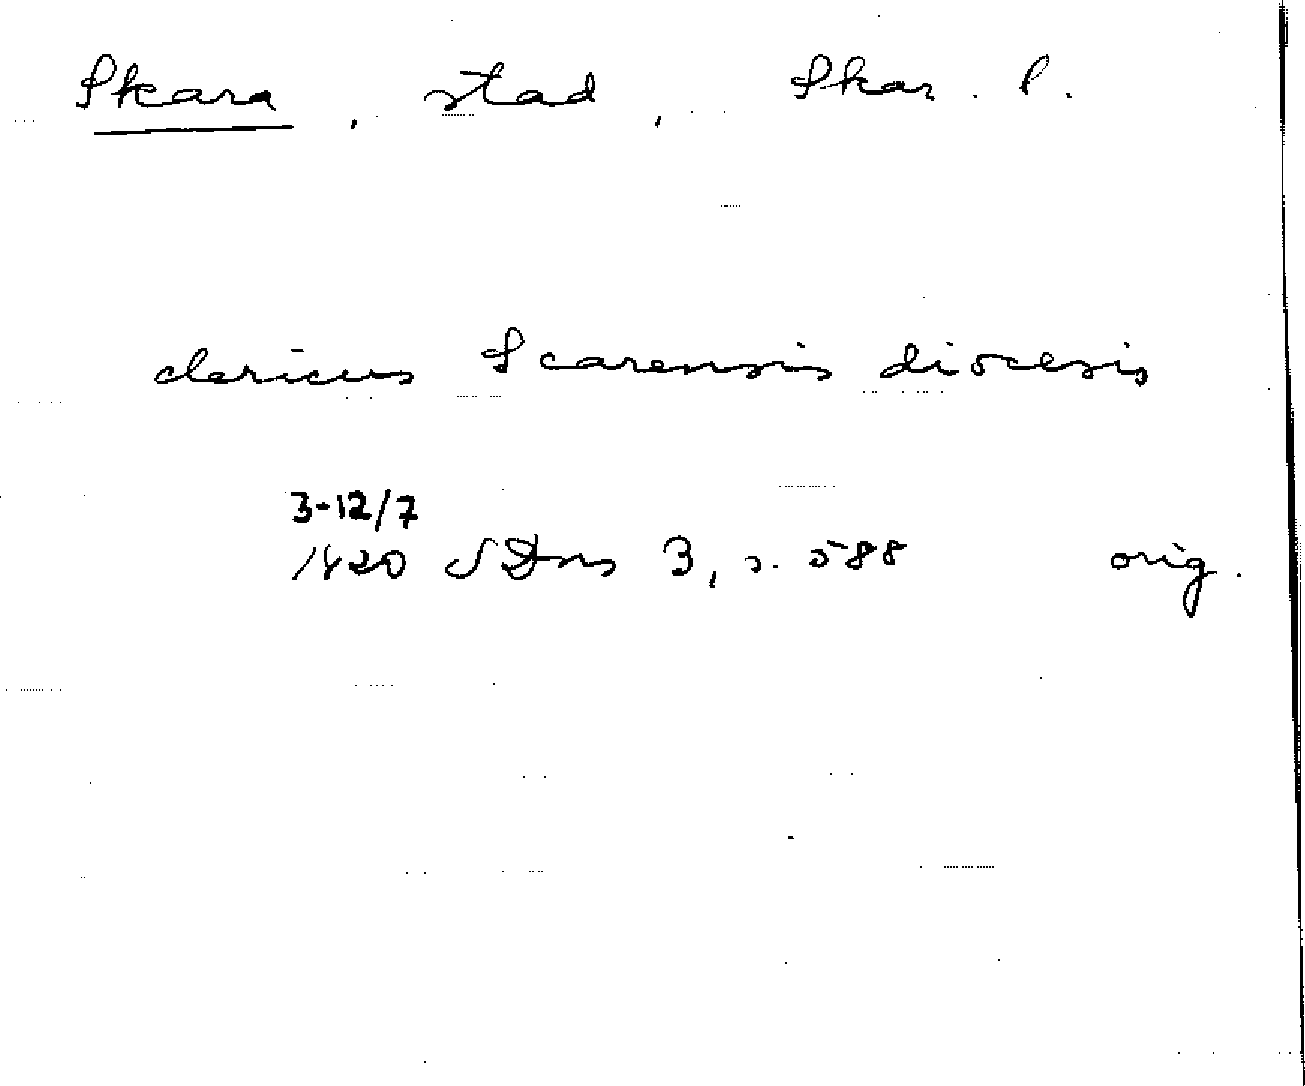 Skara, stad, Skar. l.
clericus Scarensis diocesis
3-12/7
1420 SDns 3, s. 588 orig.